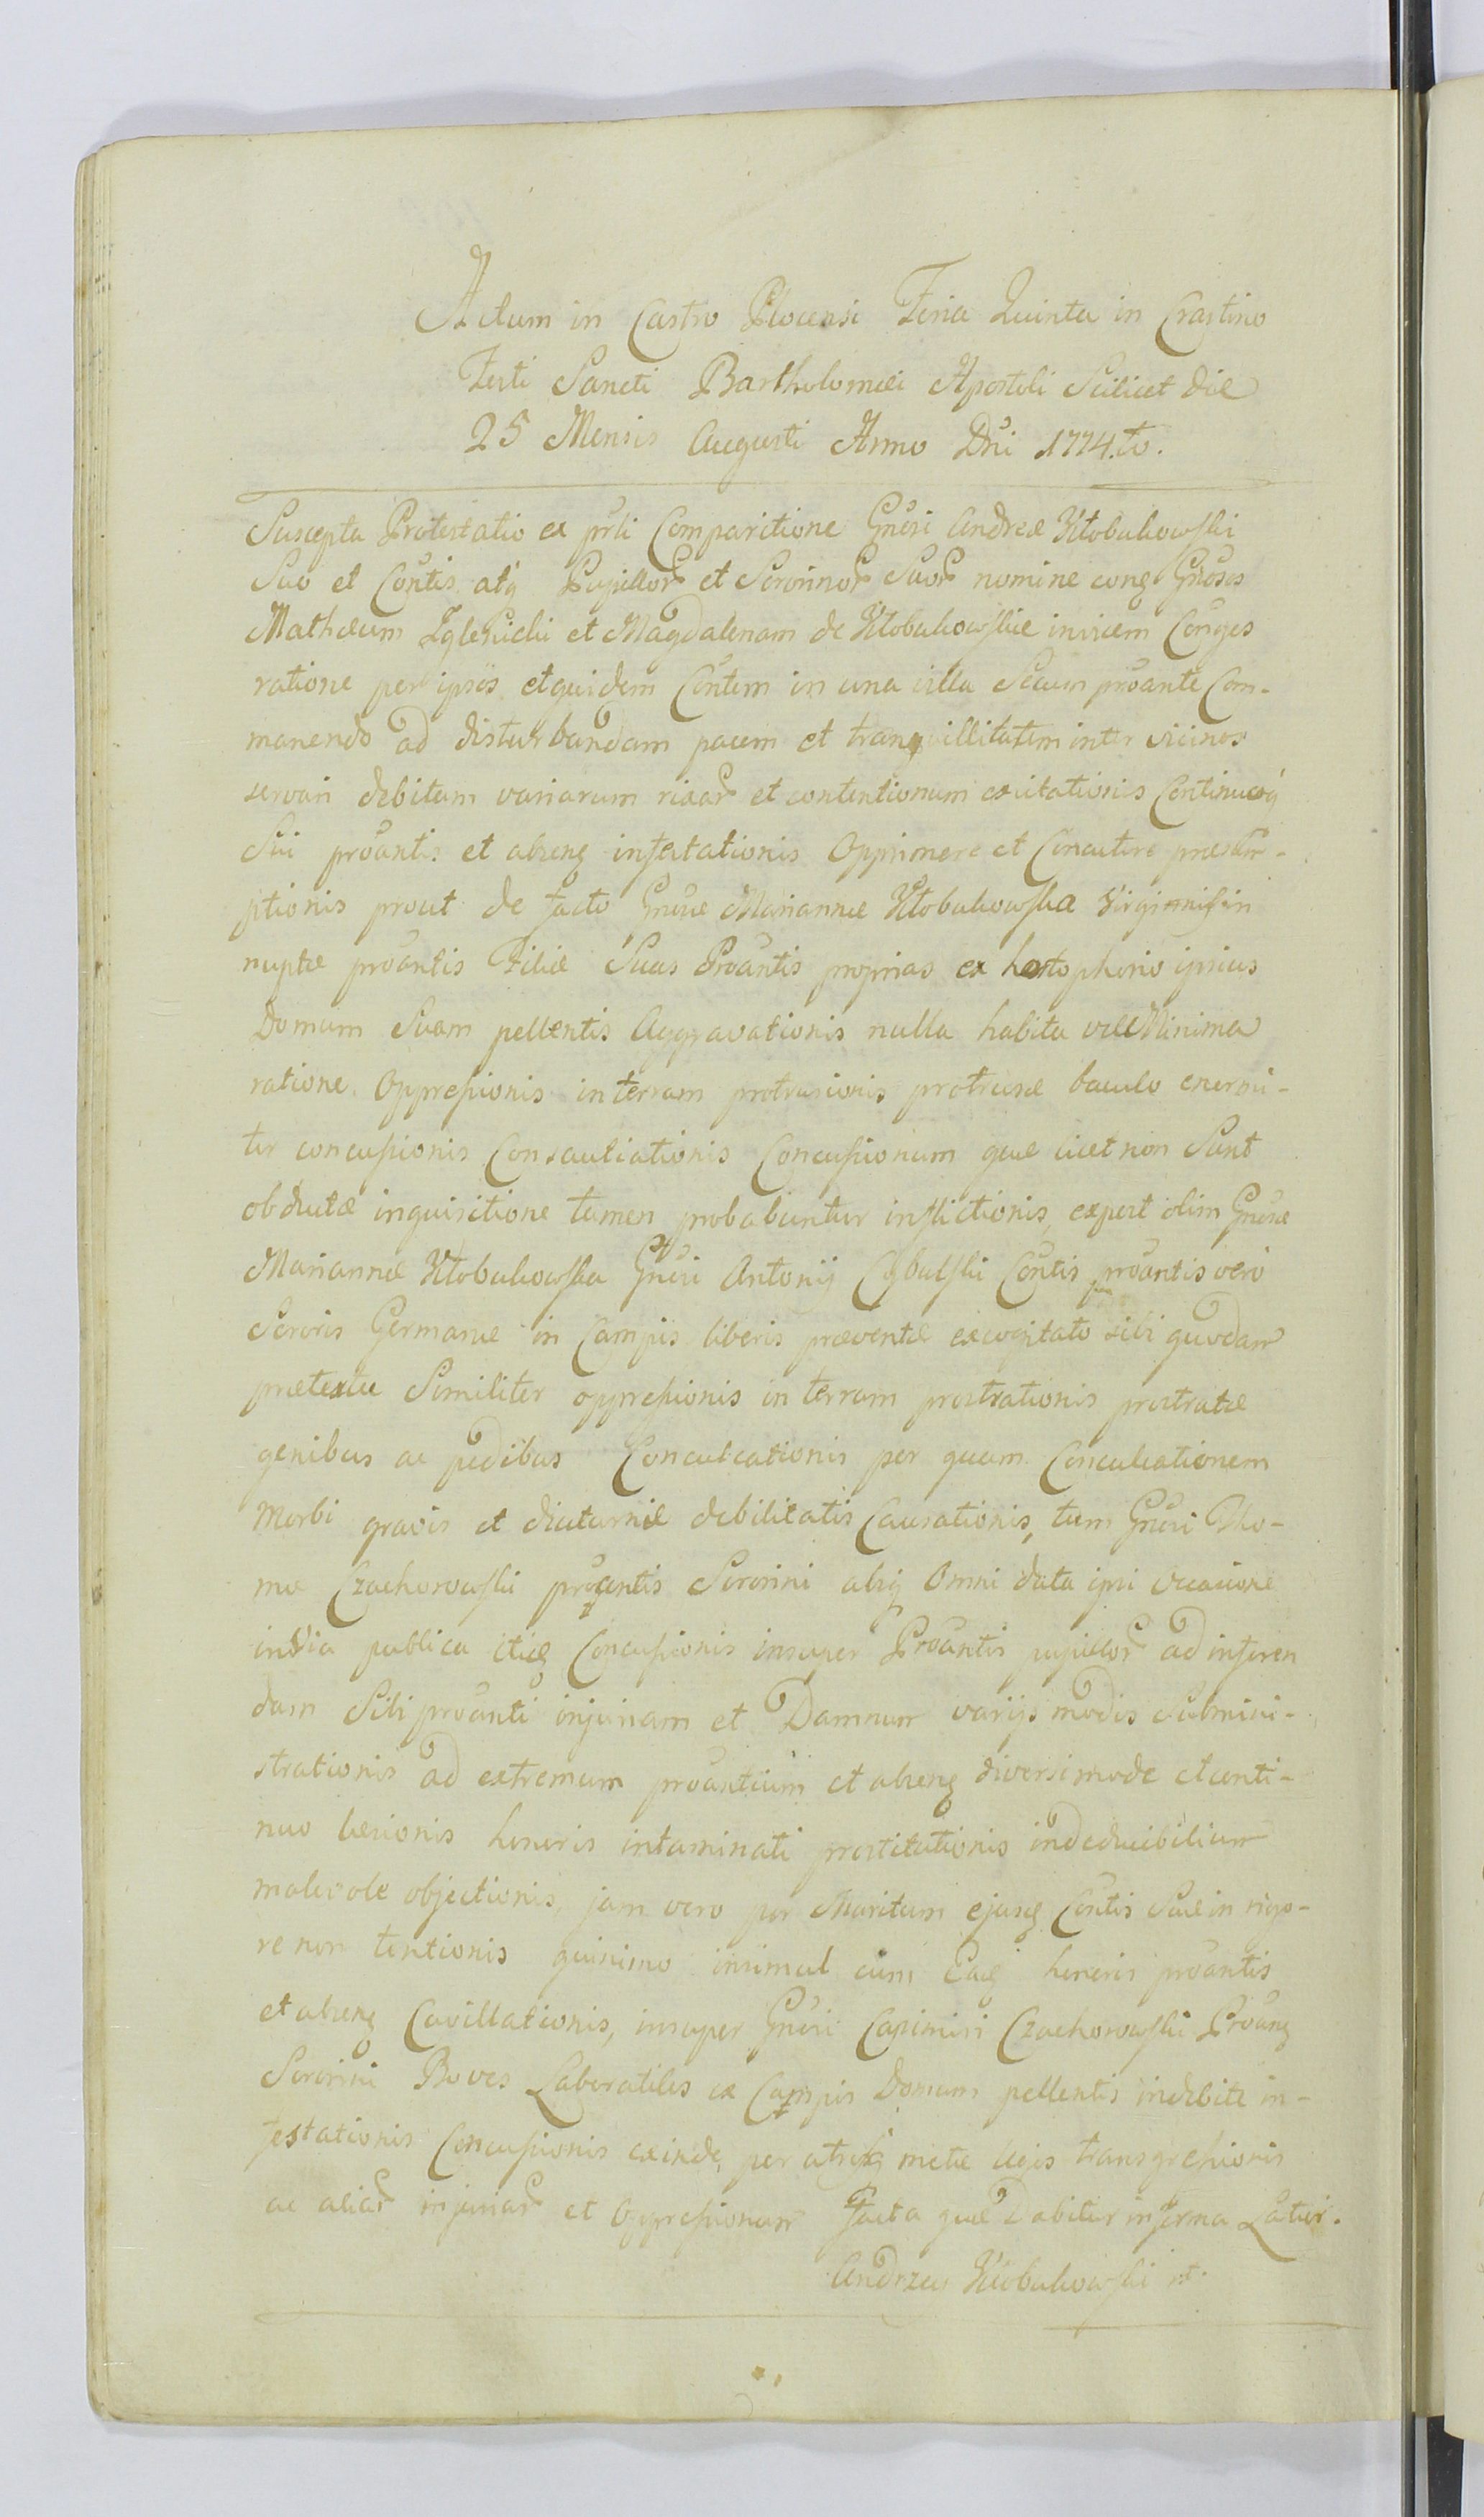 Actum in Castro Plocensi Feria Quinta in Crastino
Festi Sancti Bartholomæi Apostoli Scilicet die
25 Mensis Augusti Anno Dni 1774.to.
Suscepta Protestatio ex prli Comparitione Gnosi Andreæ Kłobukowski
Suo et Contis atq Pupillor et Sororinor Suor nomine cong Gnosos
Mathæum Zglenicki et Magdalenam de Kłobukowskie invicem Conges
ratione per ipsos etquidem Contem in una villa Secum proante Com-
manendo ad disturbandam pacem et tranquillitatem inter vicinos
servari debitam variarum rixar et contentionum excitationis Continuæq
Sui proantis et abreng infestationis Opprimere et Concutere præsum-
ptionis prout de facto Gnosæ Mariannæ Kłobukowska Virginis in
nuptæ proantis Filiæ Sues Proantis proprias ex hortophorio ipsius
Domum Suam pellentis Aggravationis nulla habita vel Minima
ratione Oppressionis in terram protrusionis protrusæ baculo enormi-
ter concussionis Consauciationis Concussionum quæ licet non Sunt
obductæ inquisitione tamen probabuntur inflictionis, expost olim Gnosæ
Mariannæ Kłobukowska Gnosi Antonij Cybulski Contis proantis vero
Sororis Germanæ in Campis liberis præventæ excogitato sibi quodam
prætextu Similiter oppressionis in terram prostrationis prostratæ
genibus ac pedibus Conculcationis per quam Conculcationem
Morbi gravis et diuturnæ debilitatis Causationis, tum Gnosi Tho-
mæ Czachorowski proantis Sororini absq Omni data ipsi occasione
in Via publica itiq Concussionis insuper Proantis pupillor ad inferen
dam Sibi proanti injuriam et Damnum varijs modis Submini-
strationis ad extremum proantium et abreng diversimode et conti-
nuo læsionis honoris intaminati prostitutionis indeducibilium
malevole objectionis, jam vero per Maritum ejusq Contis Suæ in rigo-
re non tentionis quinimo insimul cum Eaq honoris proantis
et abreng Cavillationis, insuper Gnosi Casimiri Czachorowski Proang
Sororini Boves Laboratiles ex Campis Domum pellentis indebite in-
festationis Concussionis exinde, per utrosq metæ legis transgressionis
ac aliar injuriar et Oppressionum facta quæ Dabitur in forma Latior.
Andrzey Kłobukowski